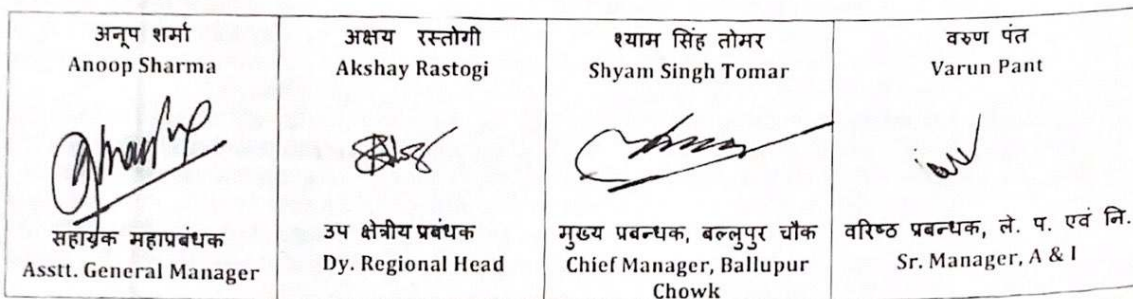 अनूप शर्मा
Anoop Sharma
सहायक महाप्रबंधक
Asstt. General Manager
अक्षय रस्तोगी
Akshay Rastogi
उप क्षेत्रीय प्रबंधक
Dy. Regional Head
श्याम सिंह तोमर
Shyam Singh Tomar
मुख्य प्रबन्धक, बल्लुपुर चौक
Chief Manager, Ballupur
Chowk
वरुण पंत
Varun Pant
वरिष्ठ प्रबन्धक, ले. प. एवं नि.
Sr. Manager, A & I